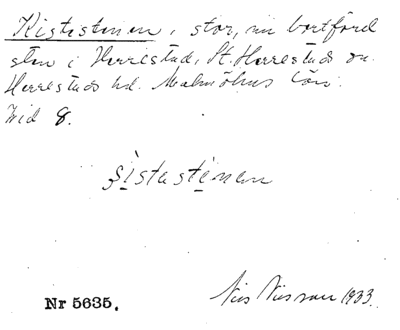 Kistestenen, stor, nu bortförd
sten i Herrestad, St. Herrestads sn.
Herrestads hd. Malmöhus län.
Zid 8.
ʃistestenen
Nr 5635.
Nils Nilsson 1933.